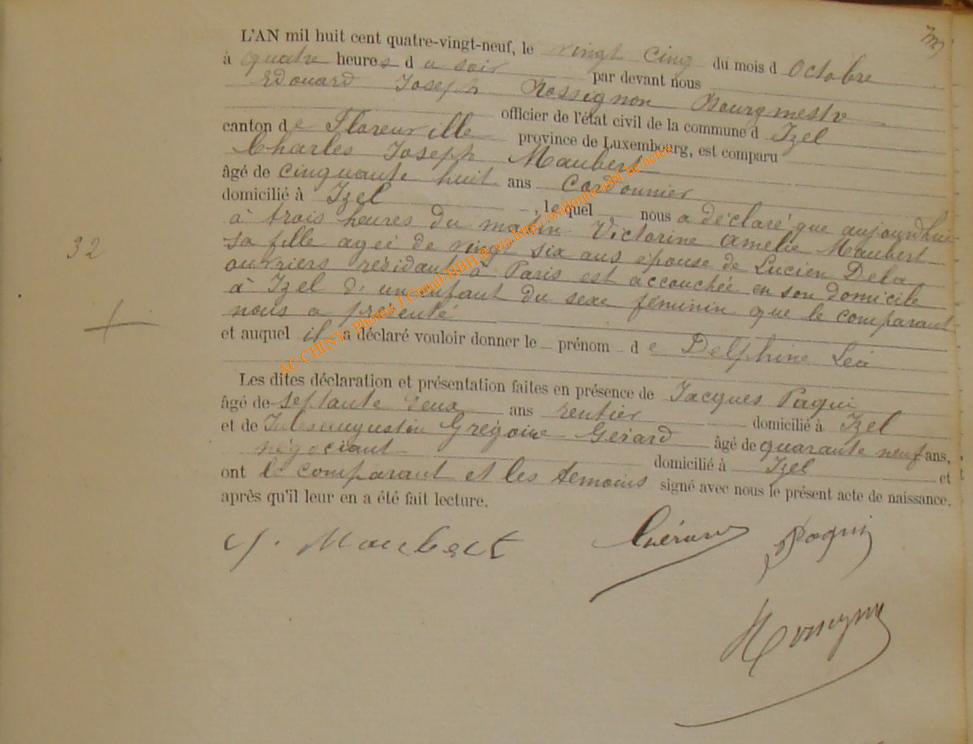 L'AN mil huit cent quatre-vingt-neuf, le vingt cinq du mois d Octobre
à quatre heures d u soir par devant nous
Edouard Joseph Rossignon Bourgmestr
officier de l'état civil de la commune d Izel
canton de Florenville province de Luxembourg, est comparu
Charles Joseph Maubert
âgé de cinquante huit ans Cordonnier
domicilié à Izel , lequel nous a déclaré, que aujourdhui
à trois heures du matin Victorine Amélie Maubert
sa fille agée de vingt six ans épouse de Lucien Dela
ouvriers résidant à Paris est accouchée en son domicile
32
à Izel d'un enfant du sexe féminin que le comparant
nous a présenté
et auquel il a déclaré vouloir donner le prénom de Delphine Léa
Les dites déclaration et présentation faites en présence de Jacques Paquin
âgé de septante deux ans rentier domicilié à Izel
et de Jules Augustin Grégoire Gérard âgé de quarante neuf ans,
négociant domicilié à Izel et
ont le comparant et les témoins signé avec nous le présent acte de naissance.
après qu'il leur en a été fait lecture.
J. Maubert Gérard Paquin
Rossignon